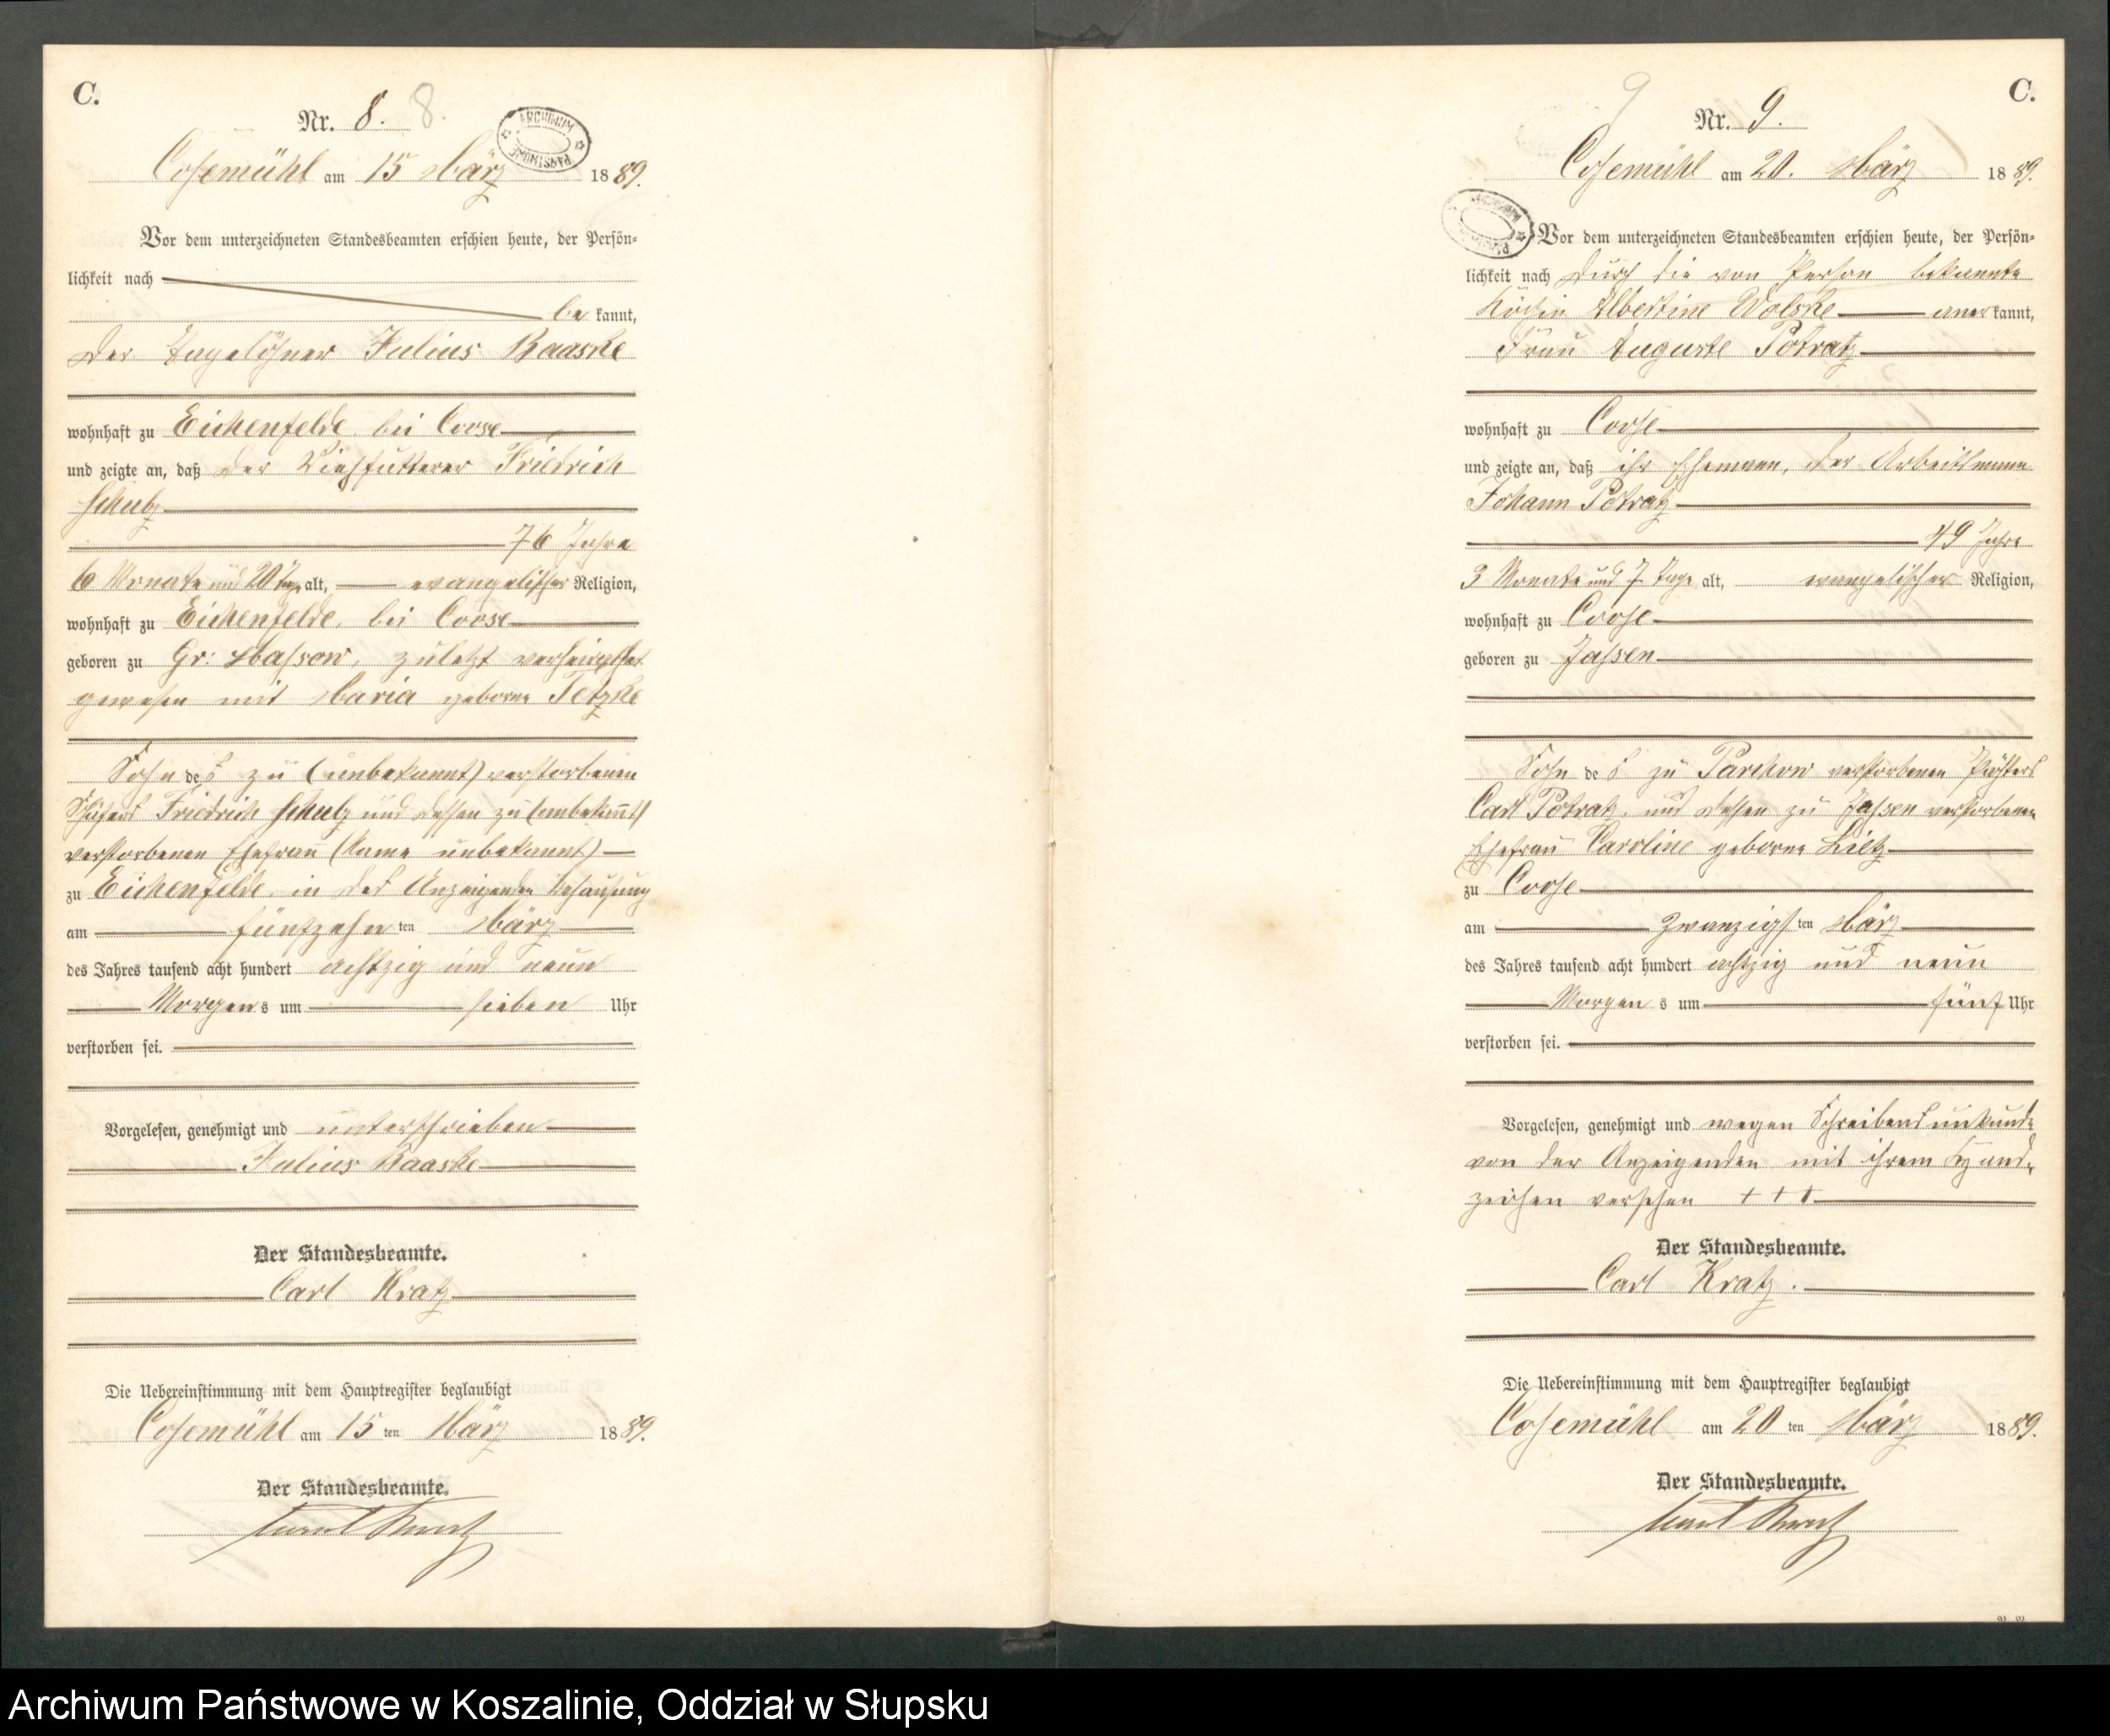 C.
Nr. 8. 8.
ARCHIWUM PAŃSTWOWE
Cosemühl am 15 März 1889.
Vor dem unterzeichneten Standesbeamten erschien heute, der Persön-
lichkeit nach
be kannt,
der Tagelöhner Julius Raaske
wohnhaft zu Eichenfelde bei Coose
und zeigte an, daß der Viehfutterer Friedrich
Schulz
76 Jahre
6 Monate und 20 Tage alt, evangelischer Religion,
wohnhaft zu Eichenfelde, bei Coose
geboren zu Gr: Massow, zuletzt verheirathet
gewesen mit Maria geborne Tetzke
Sohn des zu (unbekannt) verstorbenen
Schäfers Friedrich Schulz und dessen zu (unbekannt)
verstorbenen Ehefrau (Name unbekannt)
zu Eichenfelde, in des Anzeigenden Behausung
am fünfzehn ten März
des Jahres tausend acht hundert achtzig und neun
Morgens um sieben Uhr
verstorben sei.
Vorgelesen, genehmigt und unterschrieben
Julius Raaske
Der Standesbeamte.
Carl Kratz
Die Uebereinstimmung mit dem Hauptregister beglaubigt
Cosemühl am 15 ten März 1889.
Der Standesbeamte.
Carl Kratz
C.
9
Nr. 9.
Cosemühl am 20. März 1889.
ARCHIWUM PAŃSTWOWE
Vor dem unterzeichneten Standesbeamten erschien heute, der Persön-
lichkeit nach durch die von Person bekannte
Köchin Albertine Wolske anerkannt,
Frau Auguste Potratz
wohnhaft zu Coose
und zeigte an, daß ihr Ehemann, der Arbeitsmann
Johann Potratz
49 Jahre
3 Monate und 7 Tage alt, evangelischer Religion,
wohnhaft zu Coose
geboren zu Jassen
Sohn des zu Parchow verstorbenen
Carl Potratz, und dessen zu Jassen verstorbenen
Ehefrau Caroline geborne Lietz
zu Coose
am zwanzigsten März
des Jahres tausend acht hundert achtzig und neun
Morgens um fünf Uhr
verstorben sei.
Vorgelesen, genehmigt und wegen Schreibensunkunde
von der Anzeigenden mit ihrem Hand-
zeichen versehen + + +
Der Standesbeamte.
Carl Kratz.
Die Uebereinstimmung mit dem Hauptregister beglaubigt
Cosemühl am 20 ten März 1889.
Der Standesbeamte.
Carl Kratz
Archiwum Państwowe w Koszalinie, Oddział w Słupsku